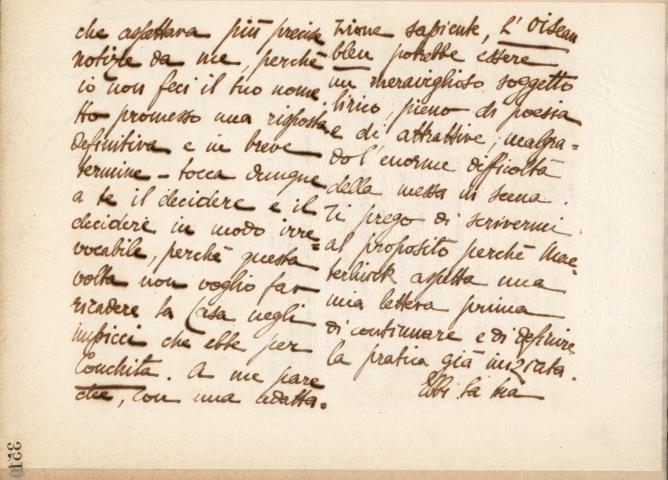 che aspettava più precise
notizie da me, perchè
io non feci il tuo nome.
Ho promesso una risposta
definitiva e in breve
termine - tocca dunque
a te il decidere e il
decidere in modo irre=
vocabile, perchè questa
volta non voglio far
ricadere la Casa negli
impicci che ebbe per
Conchita. A me pare
che, con una adatta=
zione sapiente, L'Oiseau
bleu potrebbe essere
un meraviglioso soggetto
lirico, pieno di poesia
e di attrattive, malgra=
do l'enorme difficoltà
della messa in scena.
Ti prego di scrivermi
al proposito perchè Mae=
terlinck aspetta una
mia lettera prima
di continuare e di definire
la pratica già iniziata.
Ebbi la tua